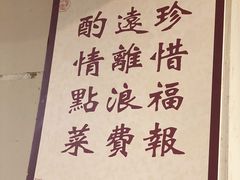 珍惜福報
遠離浪費
酌情點菜